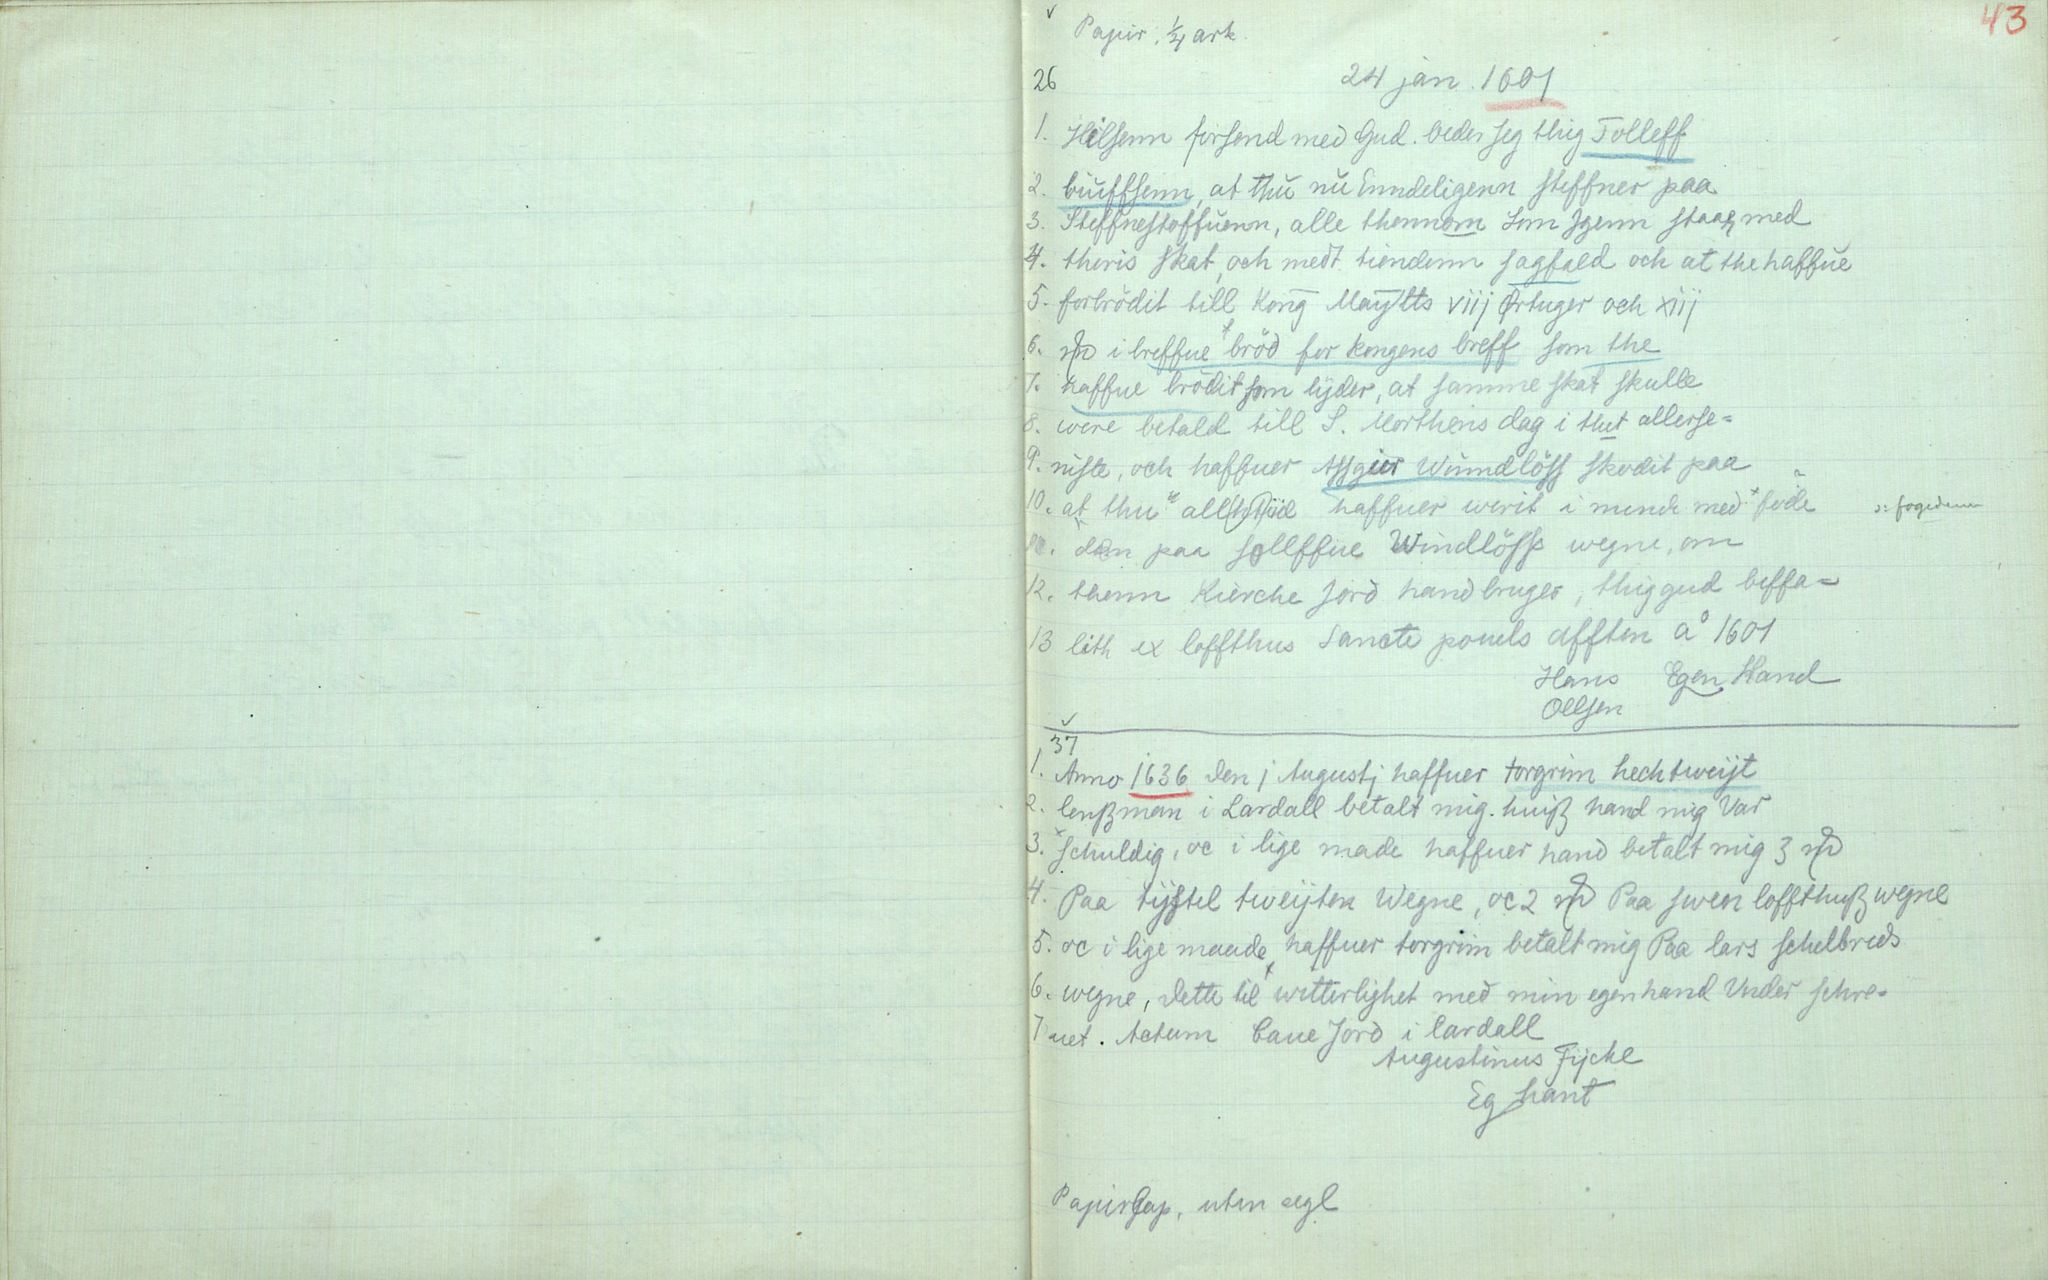 43
Papir. 1/4 ark.
26 24 jan. 1601
1. Hilsenn forsend med Gud. beder Jeg thig Tolleff
2. biuffsenn, at thu nu Enndeligenn steffner paa
3. Steffnestoffuenn, alle thennom som Jgenn staar med
4. theris skat, och medt tiendenn sagfald och at the haffue
5. forbrödit till Kong Maytts viij Ørtuger och xiij
6. i breffue bröd for kongens breff som the
7. haffue brödit som lyder, at samme skat skulle
8. were betald till S. Morthens dag i thet allerse=
9. niste, och haffuer Assgier Wundlöss skodit paa
10. at thu all haffuer werit i minde med fode ɔ: fogedenn
11. den paa sollffue Windlöss wegne, om
12. thenn Kierche Jord hand bruger, thig gud beffa=
13 lith ex loffthus Sancte pouels afften a° 1601
Hans Egen Hand
Ollsen
37
1. Anno 1636 den j Augustj haffuer torgrim hechtweijt
2. lenßman i Lardall betalt mig. huiß hand mig Var
3. schuldig, oc i lige made haffuer hand betalt mig 3
4. Paa tijstel tweijten Wegne, oc 2 Paa swen loffthuß wegne
5. oc i lige maade haffuer torgrim betalt mig Paa lars schelbreds
6. wegne, dette til witterlighet med min egen hand Vnder schre=
7 uet. Actum Caue Jord i lardall
Augustinus Fijcke
Eg hant
Papirlap, uten segl